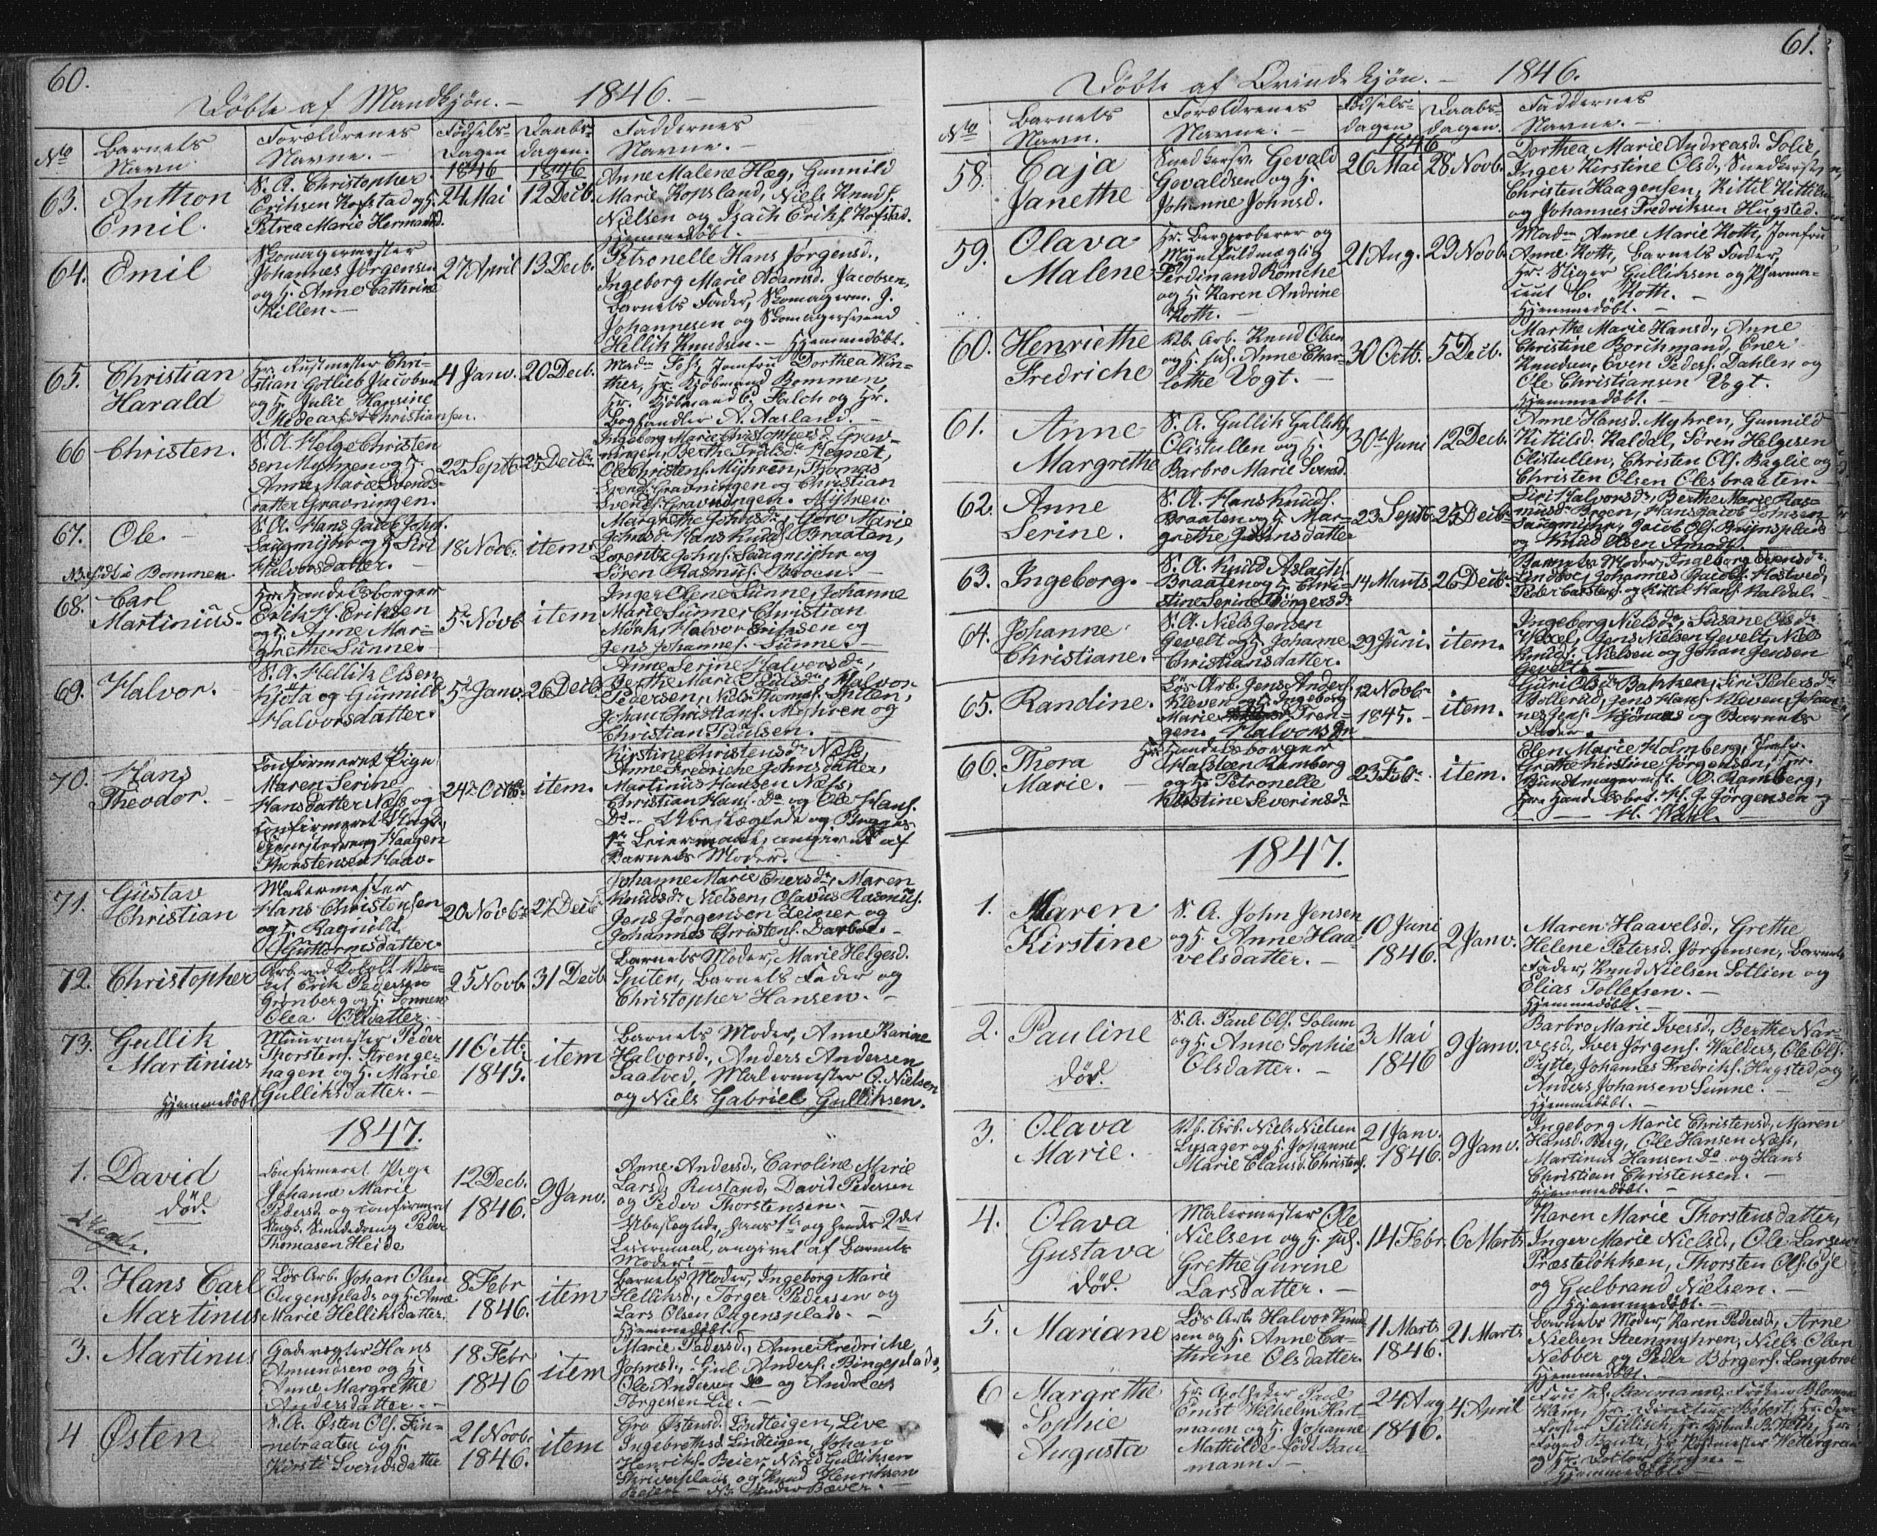 60.
Döbte af Mandkjön. — 1846. —
No
Barnets Navn
Forældrenes Navne. —
Födsels-Dagen 1846
Daabs-dagen. 1846
Faddernes Navne. —
63. Anthon Emil.
S. A. Christopher
Eriksen Kofstad og h.
Petrea Marie Hermansd.
24 Mai
12 Decb.
Anne Malene Hæg, Gunnild
Marie Kopsland, Niels Knuds.
Nielsen og Isach Eriks. Kofstad.
Hjemmedöbt.
64. Emil
Skomagermester
Johannes Jörgensen
og h. Anne Cathrine
Killen. —
27 April
13 Decb.
Petronelle Hans Jörgensd.,
Ingeborg Marie Adamsd. Jacobsen,
Barnets Fader, Skomagerm. J.
Johannesen og Skomagersvend
Hellik Knudsen. — Hjemmedöbt.
65. Christian Harald
Christian Gotlieb Jacobsen
og h. Julie Hansine
4 Janv.
20 Decb.
Mad. Foss, Jomfru Dorthea Win-
ther, Hr. Kjöbmand Bommen,
Hr. Kjöbmand C. Falch og Hr.
Boghandler A. Aasland. —
66 Christen.
S. A. Helge Christen
sen Myhren og h.
Anne Marie Svends-
datter Gravningen.
22 Septb.
25 Decb.
Ingeborg Marie Christophersd. Grav-
ningen, Berthe Trulsd. Hegnet,
Ole Christens. Myhren, Thomas
Svends. Gravningen og Christian
Svends. Gravningen. Myhren
67. Ole. —
S. A. Hans Jacob Johns.
Saugmyhr og h. Siri
Halvorsdatter. —
18 Novb.
item
Margrethe Johnsd., Goro Marie
Johnsd., Hans Knuds. Braaten,
Lorentz Johns. Saugmyhr og
Sören Rasmus. Broen. —
68. Carl Martinius.
Hr. Handelsborger
Erik J. Eriksen
og h. Anne Mar-
grethe Sunne. —
5 Novb
item
Inger Olene Sunne, Johanne
Marie Sunne, Christian
Mörk, Halvor Eriksen og
Jens Johannes. Sunne. —
69. Halvor. —
S. A. Hellik Olsen
Kjöta og Gunnild
Halvorsdatter.
5 Janv.
26 Decb.
Anne Serine Halvorsd.,
Berthe Marie Paulsd., Halvor
Pedersen, Niels Thomas. Spiten,
Johan Christians. Myhren og
Christian Paulsen.
70. Hans Theodor. —
Confirmeret Pige
Maren Serine
Hansdatter Næss og
Confirmeret Ungk.
Thorstensen Haav.
24 Octb.
item.
Kirstine Christensd. Næss,
Anne Fredriche Johnsdatter,
Martinus Hansen Næss,
Christian Hans. Do og Ole Hans.
Do — Ubeslægtede og Begges
1te Leiermaal, angivet af
Barnets Moder. —
71. Gustav Christian
Malermester
Hans Christensen
og h. Ragnild
Guttormsdatter
20 Novbr
27 Decb
Johanne Marie Enersd., Maren
Knudsd. Nielsen, Olavus Rasmus.
Jens Jörgensen Zeiner og
Johannes Christens. Darboe. —
72. Christopher
Arb. ved Kobolt Vær-
ket Erik Pedersen
Grönberg og h. Tonnine
Olea Olsdatter. —
25 Novb.
31 Decb
Barnets Moder, Marie Helgesd.
Spiten, Barnets Fader og
Christopher Hansen. —
73. Gullik Martinius
Hjemmedöbt
Muurmester Peder
Thorstens. Strenge-
hagen og h. Marie
Gulliksdatter. —
11 Octb. 1845.
item
Barnets Moder, Anne Karine
Halvorsd., Anders Andersen
Saatved, Malermester O. Nielsen
og Niels Gabriel Gulliksen.
1847.
1. David död.
Uægte.
Confirmeret Pige
Johanne Marie
Pedersd. og confirmeret
Ungk. Smededreng Peder
Thomasen Heide
12 Decb. 1846.
9 Janv.
Anne Andersd., Caroline Marie
Larsd. Rustand, David Pedersen
og Peder Thorstensen. —
Ubeslægtede, hans 1te og hendes 2det
Leiermaal, angivet af Barnets
Moder. —
2. Hans Carl Martinus
Lös Arb. Johan Olsen
Ougensplads og h. Anne
Marie Helliksdatter.
8 Febr 1846.
item
Barnets Moder, Ingeborg Marie
Helliksd., Torger Pedersen og
Lars Olsen Ougensplads. —
Hjemmedöbt. —
3. Martinus
Gadevogter Hans
Amundsen og h.
Anne Margrethe
Andersdatter. —
18 Febr 1846
item
Marie Pedersd., Anne Fredriche
Johnsd., Gul. Anders. Bingeplads,
Ole Andersen Do og Andreas
Torgersen Lie. —
4 Östen
S. A. Östen Ols. Fin-
nebraaten og h.
Kirsti Svendsdatter
21 Novb. 1846.
item
Gro Östensd. Lindteigen, Live
Ingebrethsd. Lindteigen, Johan
Henriks. Beier, Niels Gulliksen
Skriversplads og Knud Henriksen
61.
Döbte af Qvindekjön. — 1846.
No
Barnets Navn.
Forældrenes Navne. —
Födsels-dagen 1846
Daabs-dagen.
Faddernes Navne. —
58. Caja Janethe
Snedkersv. Gevald
Gevaldsen og h.
Johanne Johnsd.
26 Mai
28 Novb.
Dorthea Marie Andreasd. Soli,
Inger Kirstine Olsd., Snedkersv.
Christen Haagensen, Kittil Kittilsen
og Johannes Fredriksen Hugsted.
59. Olava Malene
Hr. Bergprober og
Myntfuldmægtig
Ferdinand Römche
og h. Karen Andrine
Roth. —
21 Aug.
29 Novb.
Madm Anne Marie Roth, Jomfru
Anne Roth, Barnets Fader,
Hr. Stiger Gulliksen og Pharma-
ceut C. Roth. —
Hjemmedöbt. —
60. Henriethe Fredriche
Vb. Arb. Knud Olsen
og h. fus. Anne Char-
lothe Vogt. —
30 Octb.
5 Decb.
Marthe Marie Hansd., Anne
Christine Borchmand, Ener
Knudsen, Even Peders. Dahlen og
Ole Christiansen Vogt. —
Hjemmedöbt. —
61. Anne Margrethe
S. A. Gullik Gulliks.
Olistullen og h.
Barbro Marie Svensd.
30 Juni
12 Decb.
Anne Hansd. Myhren, Gunnild
Kittilsd. Kaldal, Sören Helgesen
Olistullen, Christen Ols. Baglie og
Christen Olsen Olesbraaten. —
62. Anne Serine.
S. A. Hans Knuds.
Braaten og h. Mar-
grethe Johnsdatter
23 Septb.
25 Decb
Siri Halvorsd., Berthe Marie Ras-
musd. Broen, Hans Jacob Johnsen
Saugmyhr, Jacob Ols. Brynsplads
og Knud Olsen Amodt.
63. Ingeborg. —
S. A. Knud Aslachs.
Braaten og h. Chri-
stine Serine Börgersd.
14 Marts.
26 Decb
Barnets Moder, Ingeborg Svensd.
64. Johanne Christiane.
S. A. Niels Jensen
Gevelt og h. Johanne
Christiansdatter.
29 Juni.
item.
Ingeborg Nielsd., Susane Olsd.
Jens Nielsen Gevelt, Niels
Knuds. Nielsen og Johan Jensen
Gevelt. —
65. Randine.
Lös Arb. Jens Anders.
Kleven og h. Ingeborg
Marie Tren-
gen. Halvorsd.
12 Novb. 1845. —
item.
Guri Olsd. Bakken, Siri Pedersd.
Bollerud, Jens Hans. Kleven, Johan-
nes Jens. og Barnets
Fader. —
66. Thora Marie.
Hr. Handelsborger
Halsteen Ramberg
og h. Petronelle
Kirstine Severinsd.
23 Feb.
item.
Elen Marie Holmberg,
Grethe Kirstine Jörgensen, Hr.
Bundtmagerm. O. Ramberg,
Herr Handelsbor. H. J. Jörgensen og
— H. Wahl. —
1847.
1. Maren Kirstine
S. A. John Jensen
og h. Anne Haa
velsdatter. —
10 Juni 1846.
2 Janv.
Maren Haavelsd., Grethe
Helene Petersd. Jörgensen, Barnets
Fader, Knud Nielsen Sotlien og
Elias Tollefsen. —
Hjemmedöbt. —
2. Pauline död.
S. A. Paul Ols. Solum
og h. Anne Sophie
Olsdatter. —
3 Mai 1846
9 Janv.
Barbro Marie Iversd., Berthe Nar-
vesd., Iver Jörgens. Walders, Ole Ols.
Pytte, Johannes Fredriks. Hugsted og
Anders Johansen Sunne. —
Hjemmedöbt. —
3. Olava Marie.
Vf. Arb. Niels Nielsen
Lysager og h. Johanne
Marie Clausd. Christens.
21 Janv. 1846.
9 Janv.
Ingeborg Marie Christensd., Maren
Hansd. Bug, Ole Hansen Næss,
Martinus Hansen Do og Hans
Christian Christensen. —
Hjemmedöbt. —
4. Olava Gustava död.
Malermester Ole
Nielsen og h. fus.
Grethe Gurine
Larsdatter. —
14 Febr.
6 Marts
Karen Marie Thorstensdatter,
Inger Marie Nielsd., Ole Larsen
Præsteløkken, Thorsten Ols. Eje
og Gulbrand Nielsen. —
Hjemmedöbt. —
5. Mariane
Lös Arb. Halvor Knud
sen og h. Anne Ca-
thrine Olsdatter.
11 Marts 1846.
21 Marts
Barnets Moder, Karen Pedersd., Arne
Nielsen Steenmyhren, Niels Olsen
Nebber og Peder Börgers. Langebroe
Hjemmedöbt. —
6 Margrethe Sophie Augusta
Hr. Apotheker Paul
Ernst Wilhelm Hart
mann og h. Johanne
Mathilde født Bau
mann. —
24 Aug 1846.
4 April
Hjemmedöbt. —